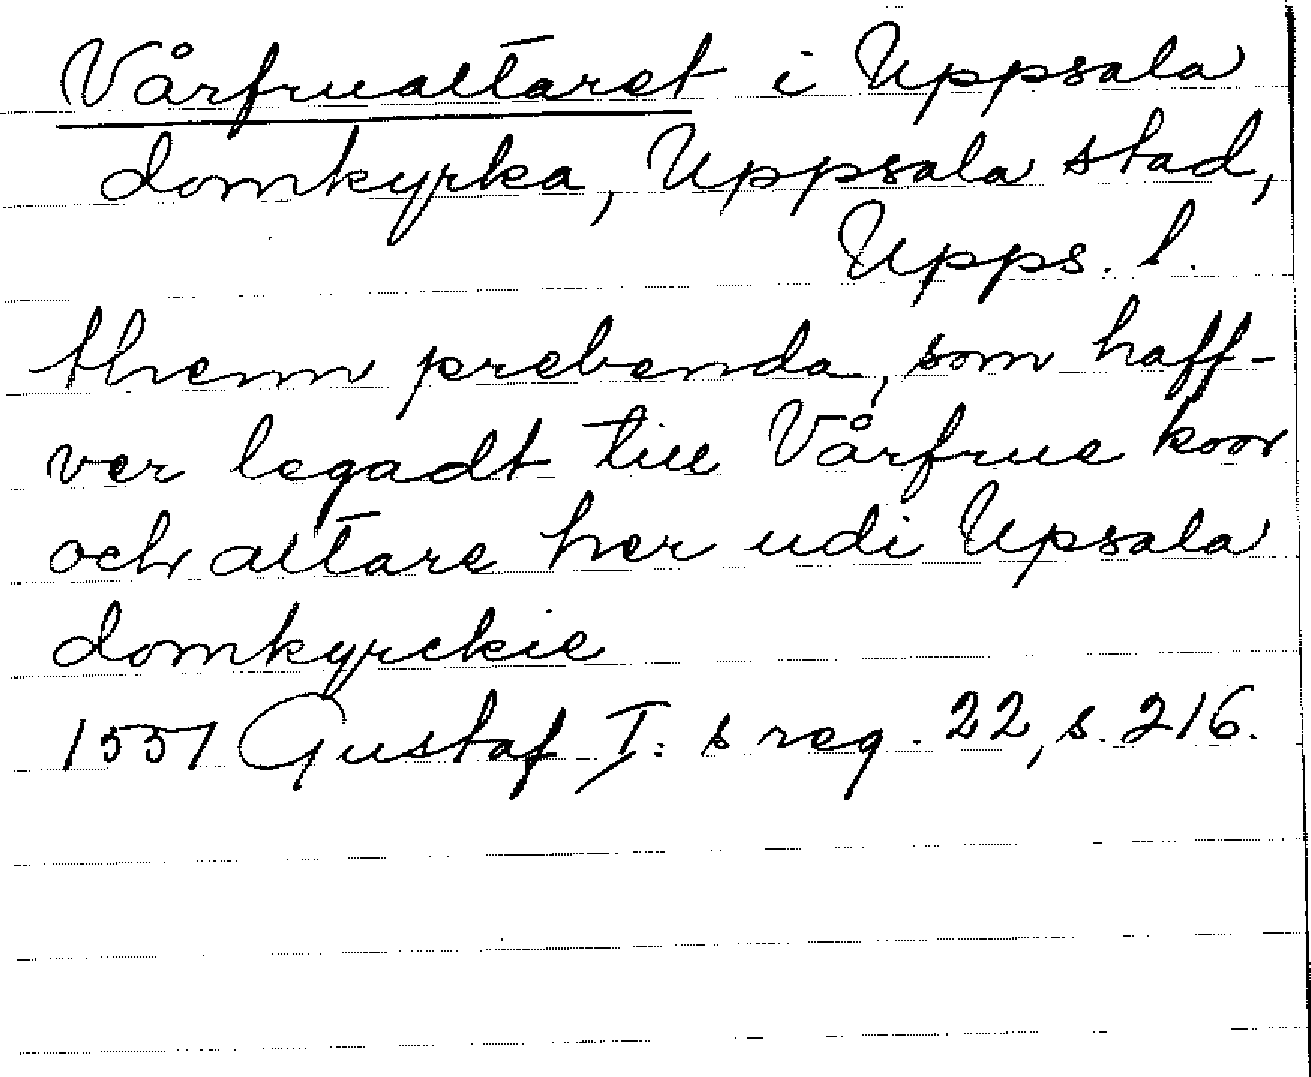 Vårfrualtaret i Uppsala
domkyrka, Uppsala stad,
Upps. l.
thenn prebenda, som haff-
ver legadt till Vårfrue koor
och altare her udi Upsala
domkyrckie
1551 Gustaf I: s reg. 22, s. 216.